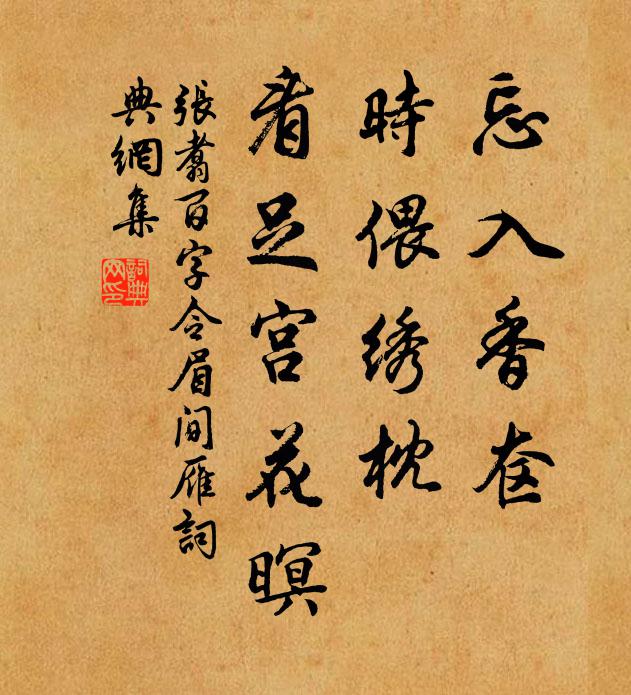 忘入香奁
時偎绣枕
看足宫花暝
張翥百字令眉間雁詞
典網集
詞典
网印